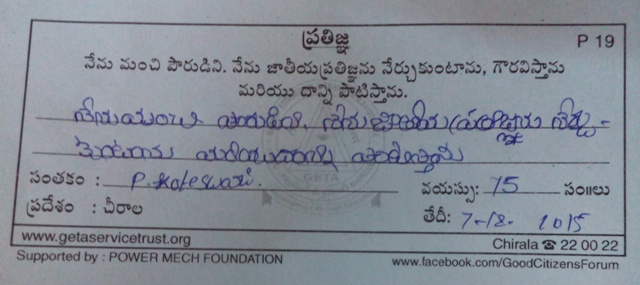 ప్రతిజ్ఞ
P 19
నేను మంచి పౌరుడిని. నేను జాతీయప్రతిజ్ఞను నేర్చుకుంటాను, గౌరవిస్తాను
మరియు దాన్ని పాటిస్తాను.
నేనుమంచి పౌరుడిని, నేనుజాతీయ ప్రతిజ్ఞను నేర్చు-
కొంటాను మరియుదాన్ని పాటిస్తాను
సంతకం : P. Koteswari. వయస్సు: 15 సం॥లు
ప్రదేశం : చీరాల తేదీ: 7-12-2015
www.getaservicetrust.org Chirala ☎ 22 00 22
Supported by : POWER MECH FOUNDATION www.facebook.com/GoodCitizensForum